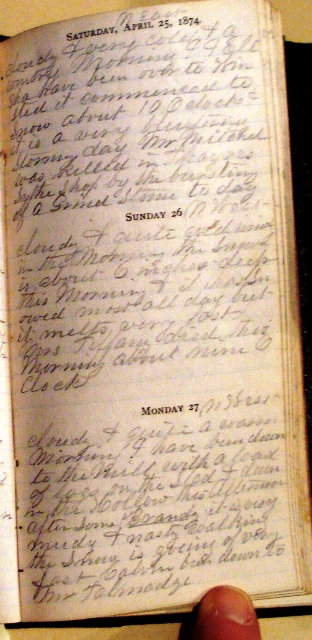 N East
SATURDAY, APRIL 25, 1874
Cloudy & very cold & a
Morning C & Est
have been over to
it commenced to
Snow about 10 O clock
it is a very
Stormy day Mr Mitchel
was killed in
Shop by the bursting
of a Grind Stone to day
SUNDAY 26 N West
Cloudy & quite cold
in the Morning the Snow
is about 6 inches deep
this Morning & it has Sn
owed most all day but
it melts very fast
Mrs Tiffany died this
Morning about nine O
Clock
MONDAY 27 N West
Cloudy & quite a warm
Morning I have been down
to the Mill with a load
of logs on the Sled & down
in the Hollow this afternoon
after some it is very
mudy & nasty walking
the Snow is going of very
fast Calvin been down to
Mr Talmadge